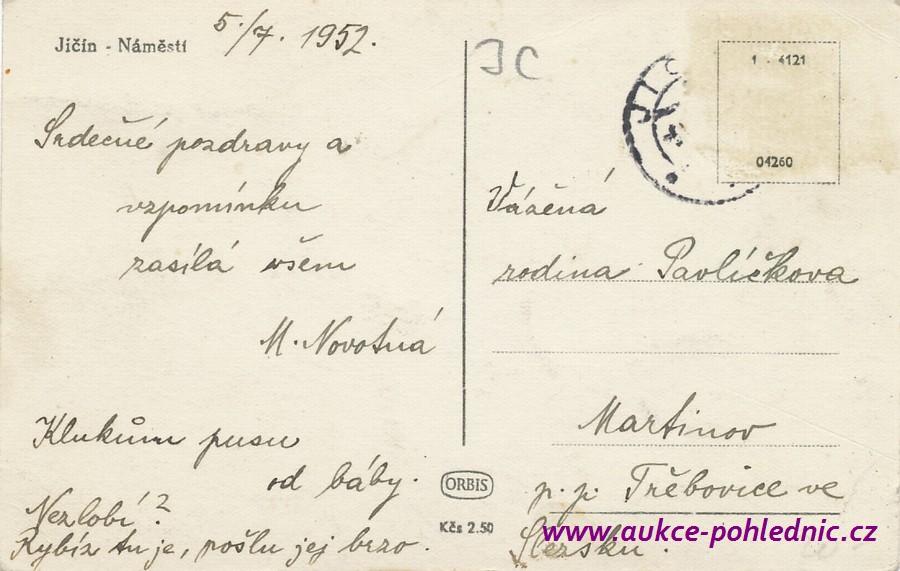 Jičín - Náměstí
5./7. 1952.
Srdečné pozdravy a
vzpomínku
zasílá všem
M. Novotná
Klukům pusu
od báby.
Nezlobí?
Rybíz tu je, pošlu jej brzo.
ORBIS
Kčs 2.50
JC
JIČ
1 - 4121
04260
Vážená
rodina Pavlíčkova
Martinov
p. p. Třebovice ve
Slezsku.
www.aukce-pohlednic.cz